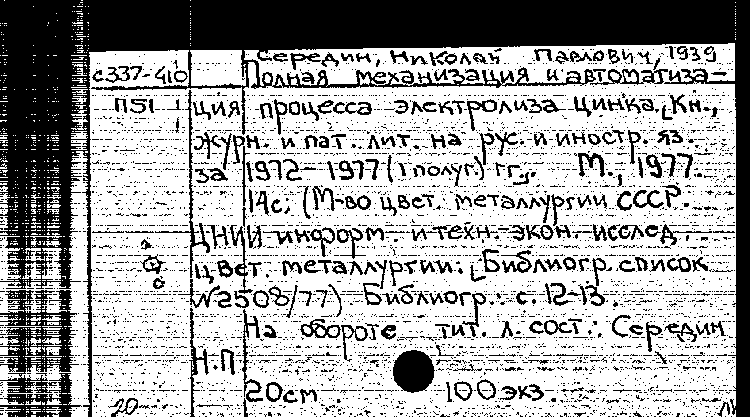 Середин, Николай Павлович, 1939
с337-410 Полная механизация и автоматиза-
П51 ция процесса электролиза цинка. [Кн.,
журн. и пат. лит. на рус. и иностр. яз.
за 1972-1977 (I полуг.) гг.]. М., 1977.
14с; (М-во цвет. металлургии СССР.
ЦНИИ информ. и техн.-экон. исслед.
цвет. металлургии. [Библиогр. список
N2508/77) Библиогр.: с. 12-13.
На обороте тит. л. сост.: Середин
Н.П
20см. 100 экз.
20